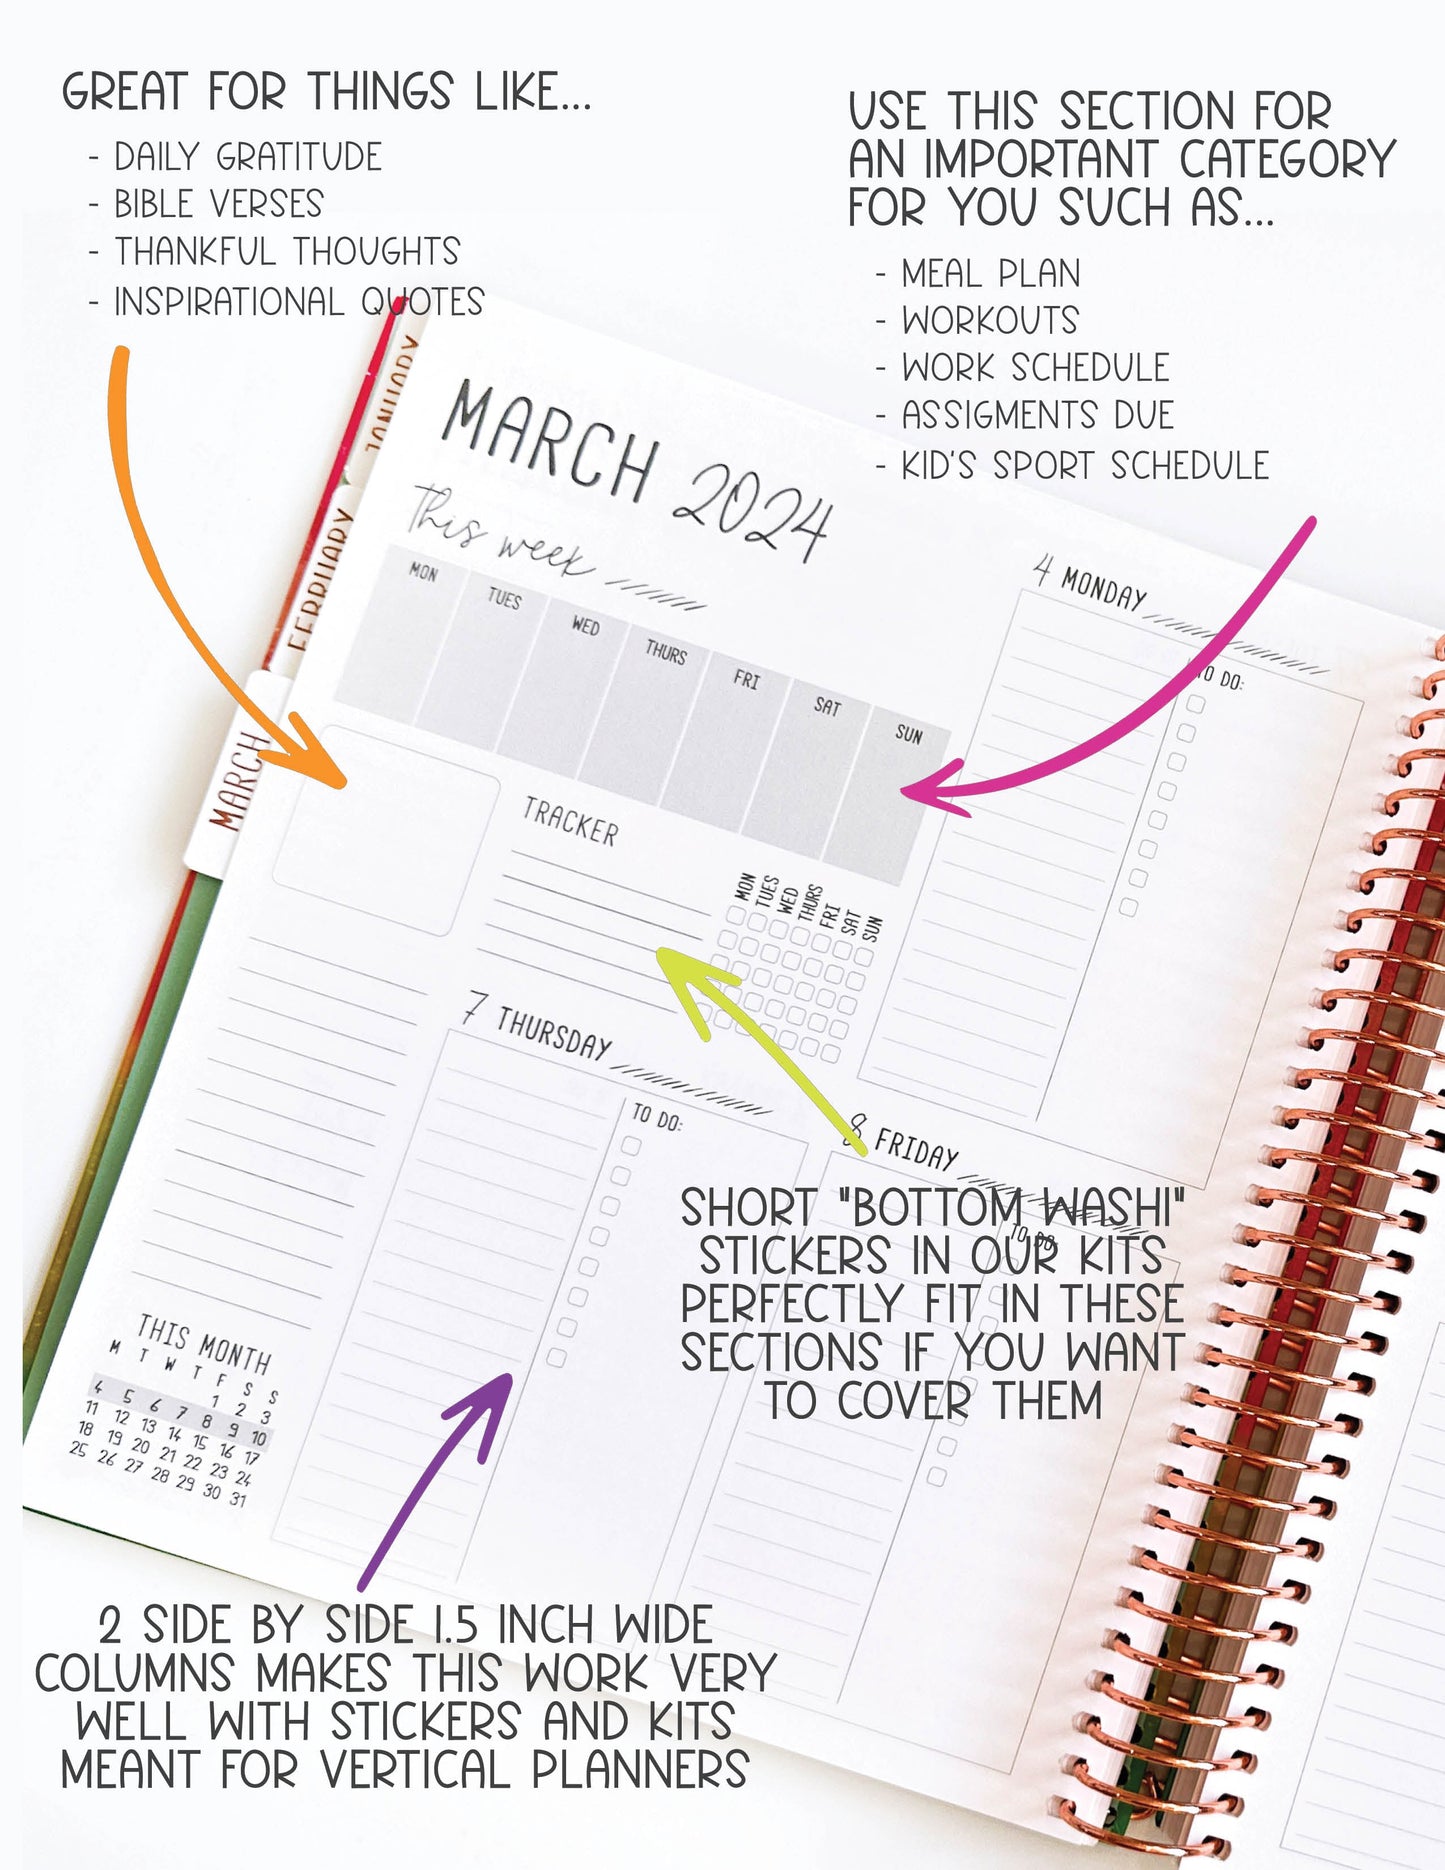 GREAT FOR THINGS LIKE...
- DAILY GRATITUDE
- BIBLE VERSES
- THANKFUL THOUGHTS
- INSPIRATIONAL QUOTES
USE THIS SECTION FOR
AN IMPORTANT CATEGORY
FOR YOU SUCH AS...
- MEAL PLAN
- WORKOUTS
- WORK SCHEDULE
- ASSIGMENTS DUE
- KID'S SPORT SCHEDULE
JANUARY
FEBRUARY
MARCH
MARCH 2024
This week
MON TUES WED THURS FRI SAT SUN
TRACKER
MON TUES WED THURS FRI SAT SUN
4 MONDAY
TO DO:
7 THURSDAY
TO DO:
8 FRIDAY
TO DO:
SHORT "BOTTOM WASHI"
STICKERS IN OUR KITS
PERFECTLY FIT IN THESE
SECTIONS IF YOU WANT
TO COVER THEM
THIS MONTH
M T W T F S S
1 2 3
4 5 6 7 8 9 10
11 12 13 14 15 16 17
18 19 20 21 22 23 24
25 26 27 28 29 30 31
2 SIDE BY SIDE 1.5 INCH WIDE
COLUMNS MAKES THIS WORK VERY
WELL WITH STICKERS AND KITS
MEANT FOR VERTICAL PLANNERS